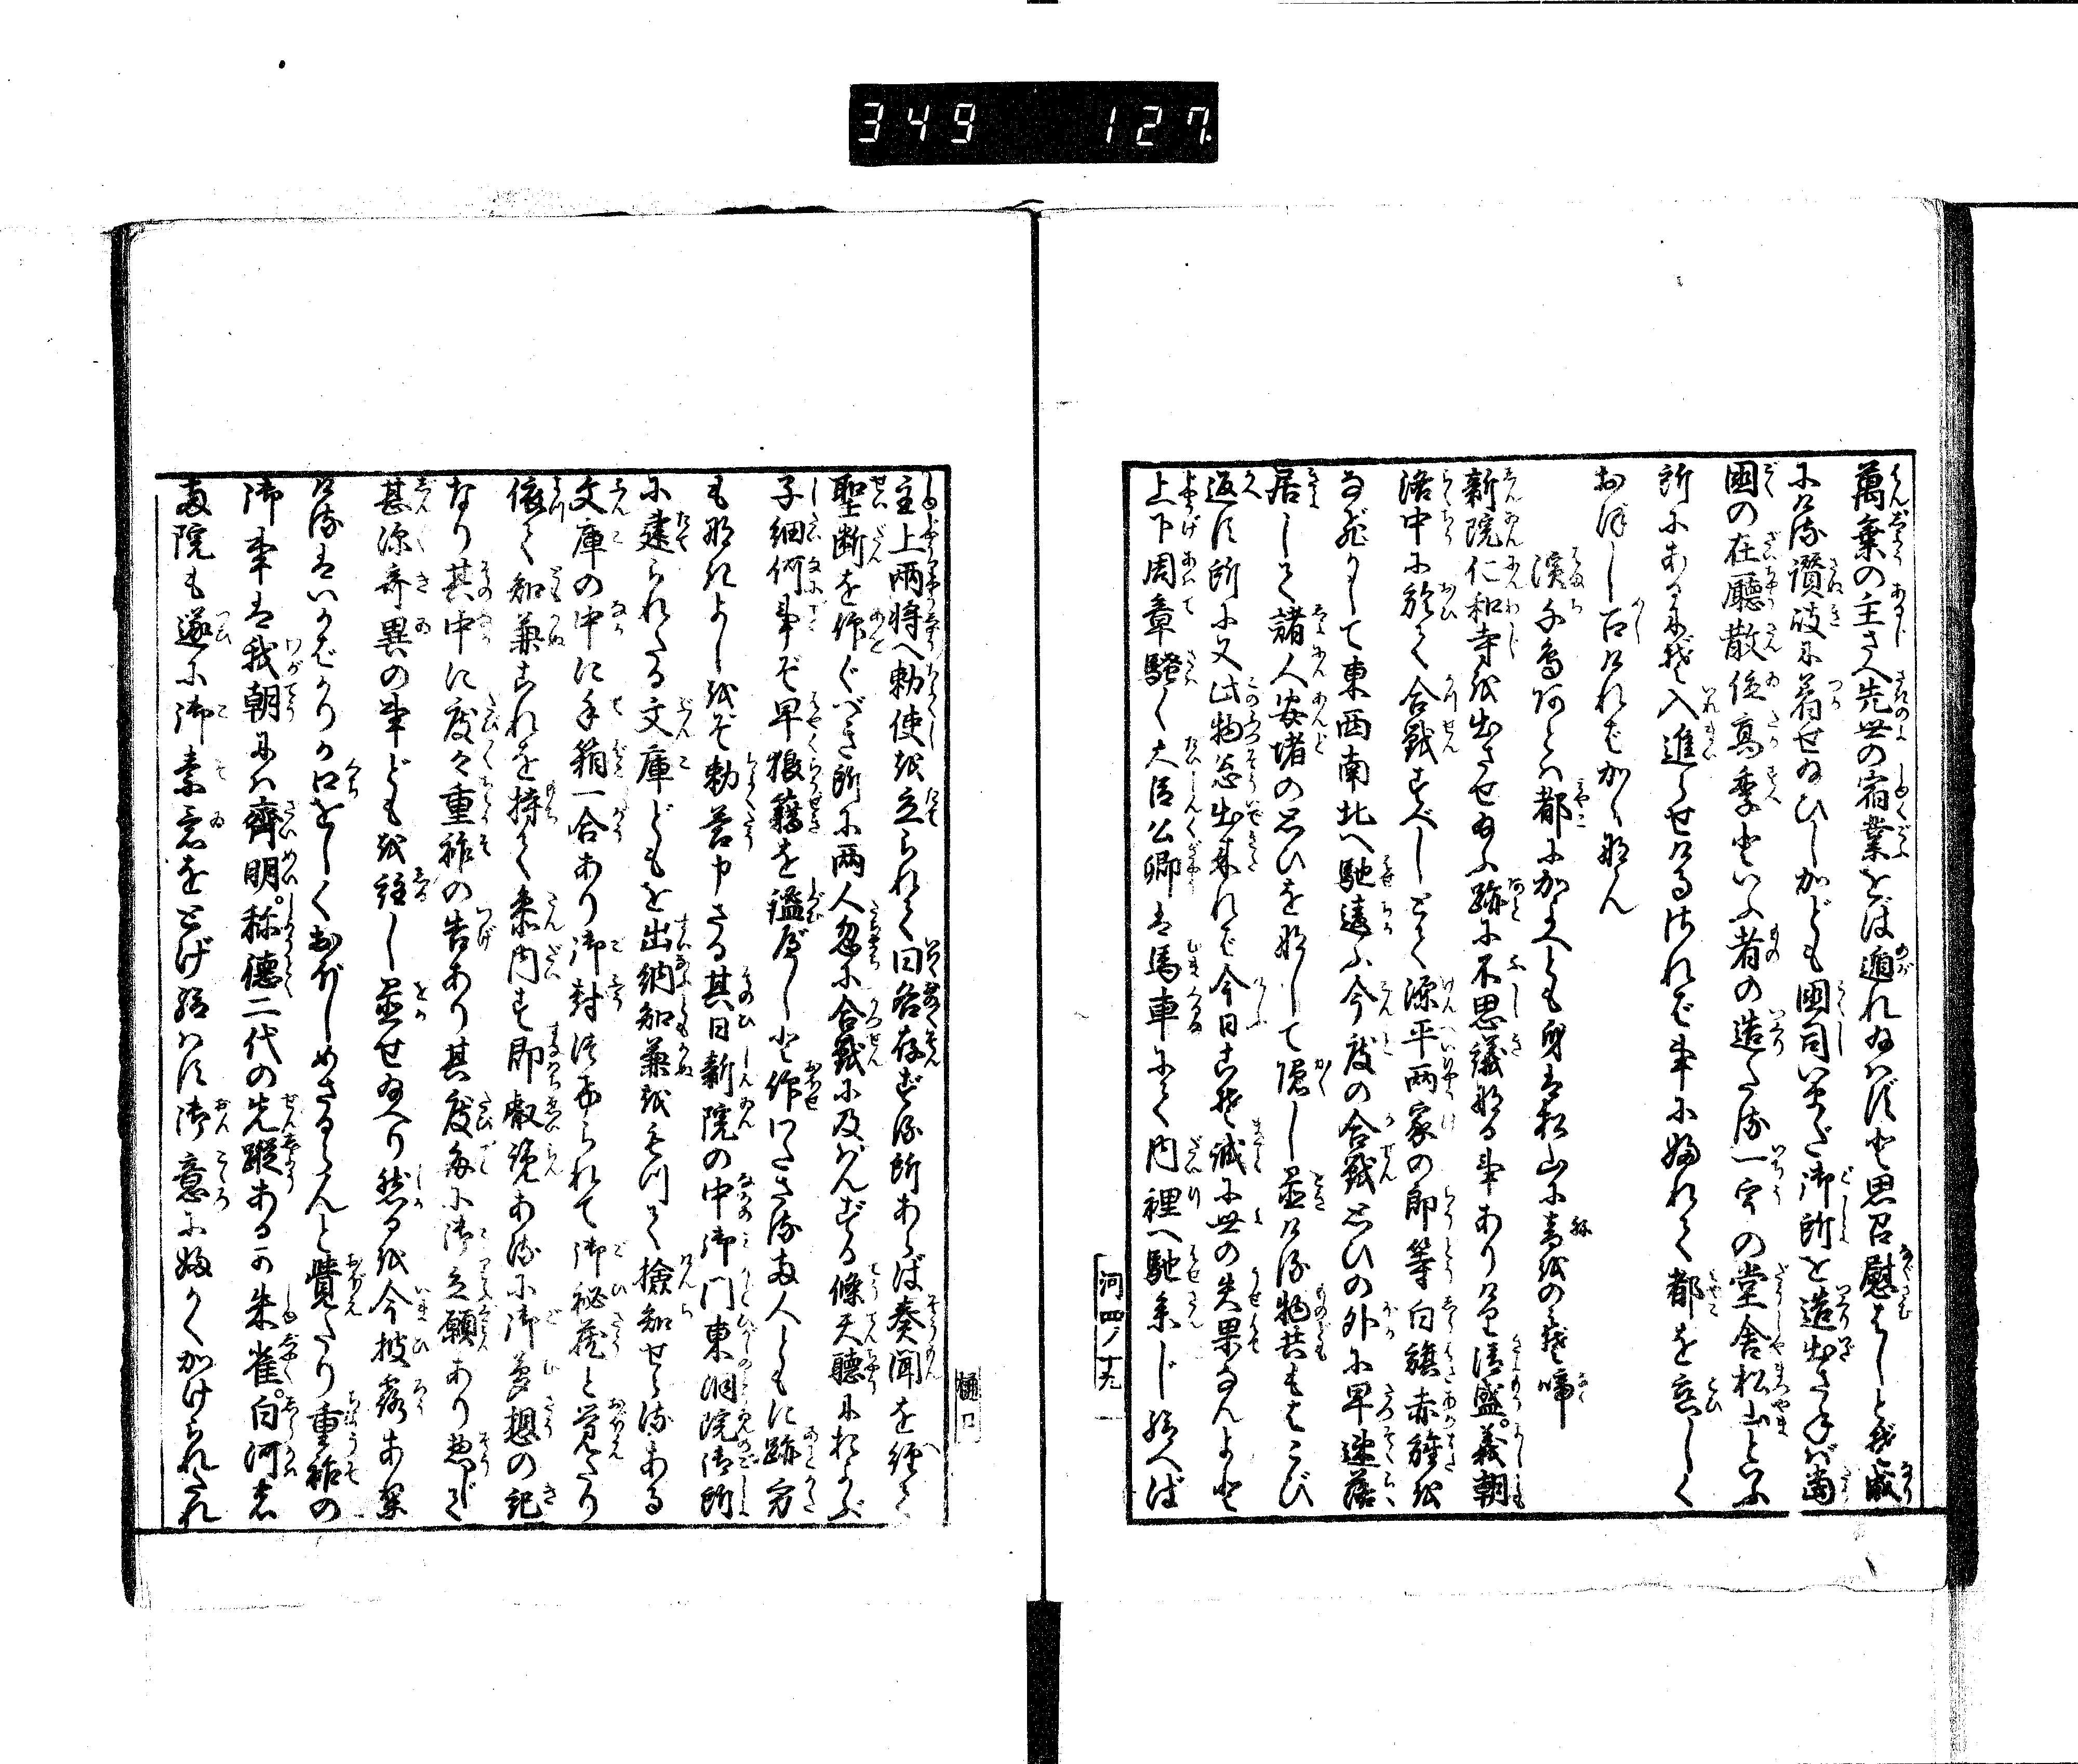 349 127
萬乗の主さへ先世の宿業をば遁れ給はず と思召慰ましとぞ成
にける讃岐に着せ給ひしかども国司いまだ御所を造出さゞれば当
国の在廳散位高季といふ者の造たる一宇の堂舎松山といふ
所にあるにぞ入進らせけるされば事に触れて都を恋しく
おぼし召ければかくなん
濱千鳥跡は都にかよへども身は松山に音をのみぞ啼
新院仁和寺を出させ給ふ跡に不思議なる事あり清盛。義朝
洛中に於て合戦すべしとて源平両家の郎等白旗赤旗を
なびかして東西南北へ馳違ふ今度の合戦思ひの外に早速落
居して諸人安堵の思ひをなして隠し置ける物共もはこび
返す所に又此物忩出来れば今日こそ誠に世の失果なんよと
上下周章騒く大臣公卿は馬車にて内裡へ馳参じ給へば
河四ノ十九
主上両将へ勅使を立られて曰各存ずる所あらば奏聞を経て
聖断を仰ぐべき所に両人忽に合戦に及ばんずる條天聴におよぶ
子細何事ぞ早狼藉を謐べしと仰下さる両人ともに跡方
もなきよしをぞ勅答申さる其日新院の中御門東洞院御所
に建られたる文庫どもを出納知兼をもつて撿知せらるゝある
文庫の中に手箱一合あり御封付られて御秘蔵と覚たり
依て知兼これを持て参内す即叡覧あるに御夢想の記
なり其中に度々重祚の告あり其度毎に御立願あり惣じて
甚深奇異の事どもを註し置せ給へり然るを今披露あり
ける はいかばかりか口をしくおぼしめさるらんと覚たり重祚の
御事は我朝には齊明。称徳二代の先蹤あるか朱雀。白河の
両院も遂に御素意をとげ給はず御意に疎くかけられたれ
樋口